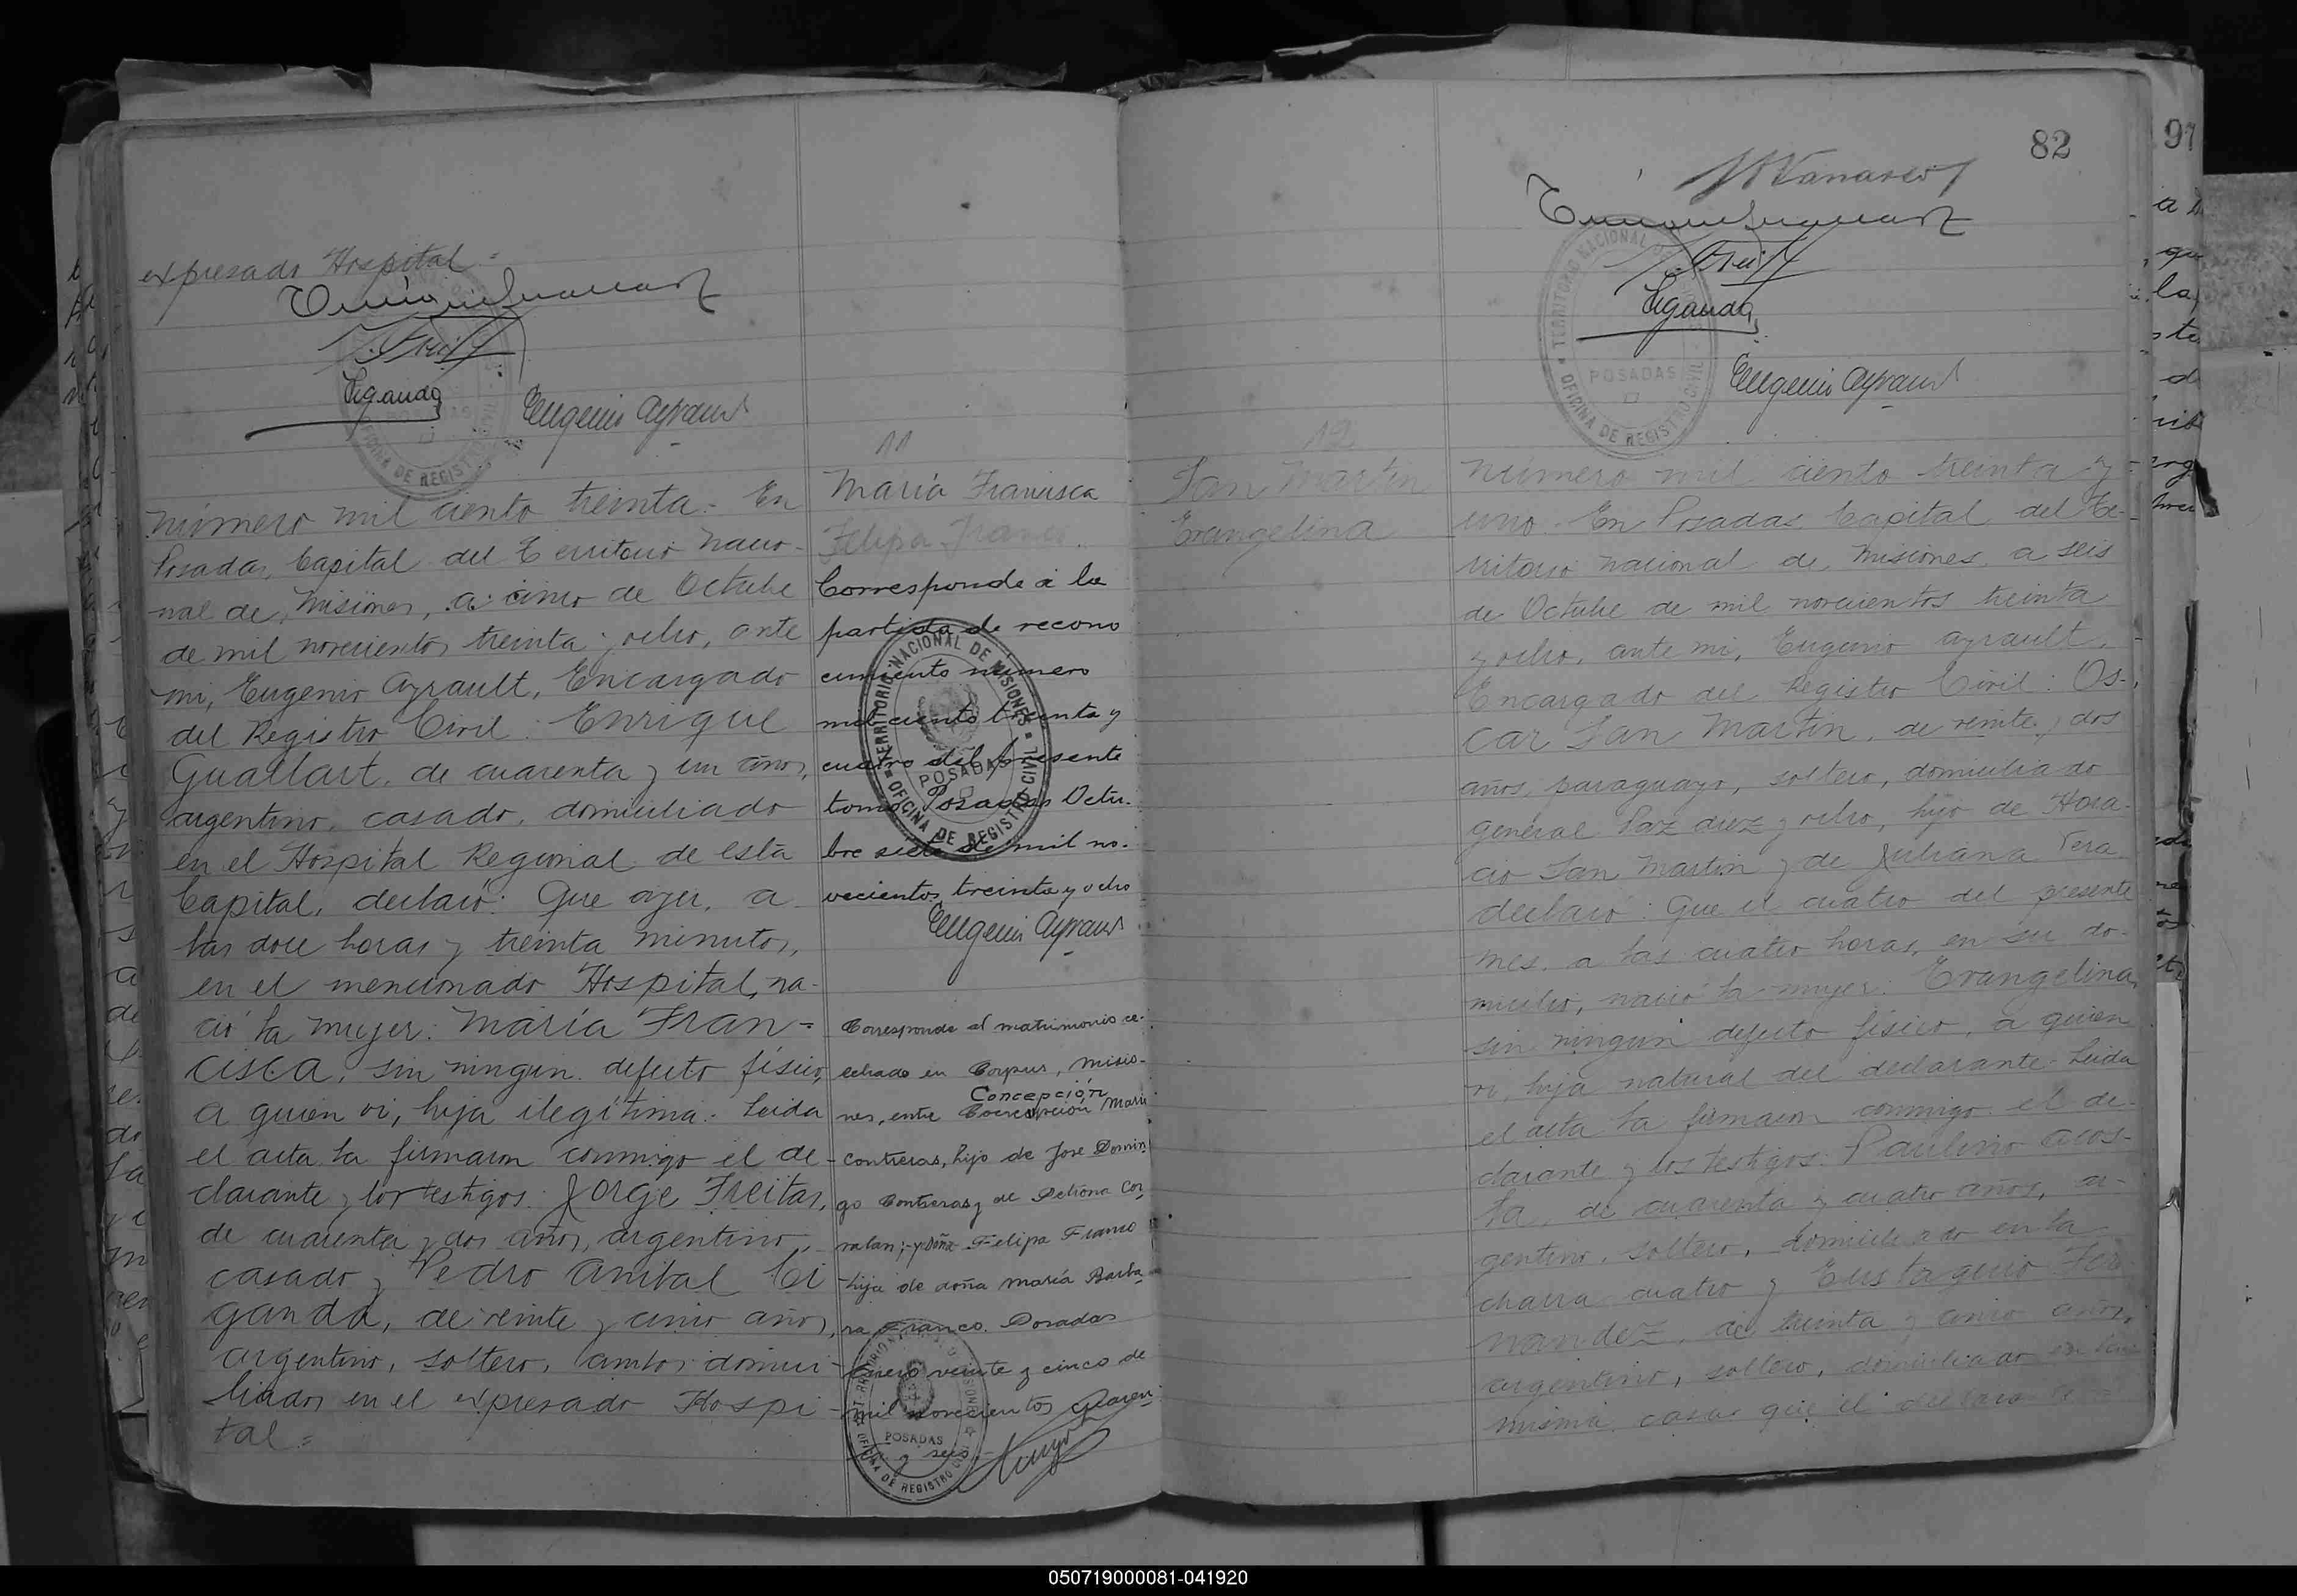 expresado Hospital=
Eugenio Ayrault
Número mil ciento treinta.- En
Posadas, Capital del Territorio Nacio-
nal de Misiones, a cinco de Octubre
de mil novecientos treinta y ocho, ante
mi, Eugenio Ayrault, Encargado
del Registro Civil: Enrique
Guallart, de cuarenta y un años,
argentino, casado, domiciliado
en el Hospital Regional de esta
Capital, declaró: Que ayer, a
las doce horas y treinta minutos,
en el mencionado Hospital, na-
ció la mujer: María Fran=
cisca, sin ningun defecto físico,
a quien vi, hija ilegítima. Leida
el acta la firmaron conmigo el de-
clarante y los testigos: Jorge Freitas,
de cuarenta y dos años, argentino,
casado y Pedro Anibal Ci
ganda, de veinte y cinco años,
argentino, soltero, ambos domici-
liados en el expresado Hospi-
tal=
11
María Francisca
Felipa Franco.
Corresponde á la
partida de recono
cimiento número
mil ciento treinta y
cuatro del presente
tomo Posadas Octu-
bre siete de mil no-
vecientos treinta y ocho
Eugenio Ayrault
TERRITORIO NACIONAL DE MISIONES
POSADAS
OFICINA DE REGISTRO CIVIL
Corresponde al matrimonio ce-
lebrado en Corpus, Misio-
Concepción
nes, entre Concepción María
Contreras, hijo de Jose Domin
go Contreras y de Petrona Cor
ralan;-y Doña Felipa Franco
hija de doña María Barba
ra Franco. Posadas
Enero veinte y cinco de
mil novecientos Cuaren
y seis.-
POSADAS
OFICINA DE REGISTRO CIVIL
82
97
TERRITORIO NACIONAL
POSADAS
OFICINA DE REGISTRO CIVIL
Eugenio Ayrault
12
San Martin
Evangelina
Número mil ciento treinta y
uno. En Posadas Capital del Te-
rritorio Nacional de Misiones, a seis
de Octubre de mil novecientos treinta
y ocho, ante mi, Eugenio Ayrault,
Encargado del Registro Civil: Os-
car San Martin, de veinte y dos
años, paraguayo, soltero, domiciliado
General Paz diez y ocho, hijo de Hora-
cio San Martin y de Juliana Vera
declaró: Que el cuatro del presente
mes, a las cuatro horas, en su do-
micilio, nació la mujer: Evangelina,
sin ningun defecto físico, a quien
vi, hija natural del declarante. Leida
el acta la firmaron conmigo el de-
clarante y los testigos: Paulino Acos-
ta, de cuarenta y cuatro años, ar-
gentino, soltero, domiciliado en la
chacra cuatro y Eustaquio Fer-
nandez, de treinta y cinco años,
argentino, soltero, domiciliado en la
misma casa que el declarante=